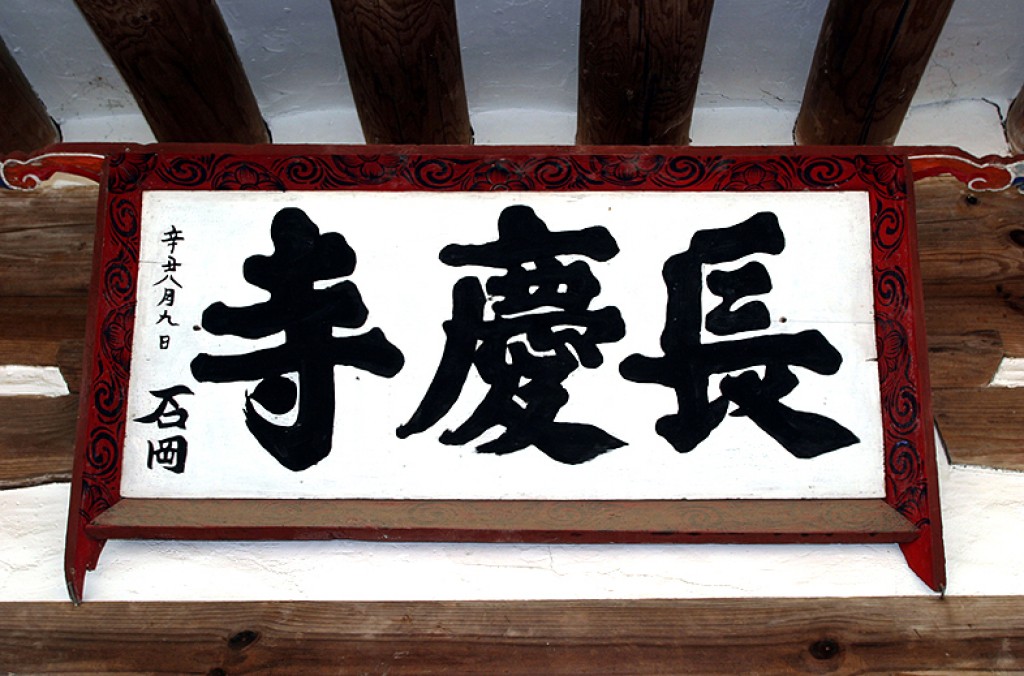 長慶寺
辛丑八月九日
石岡